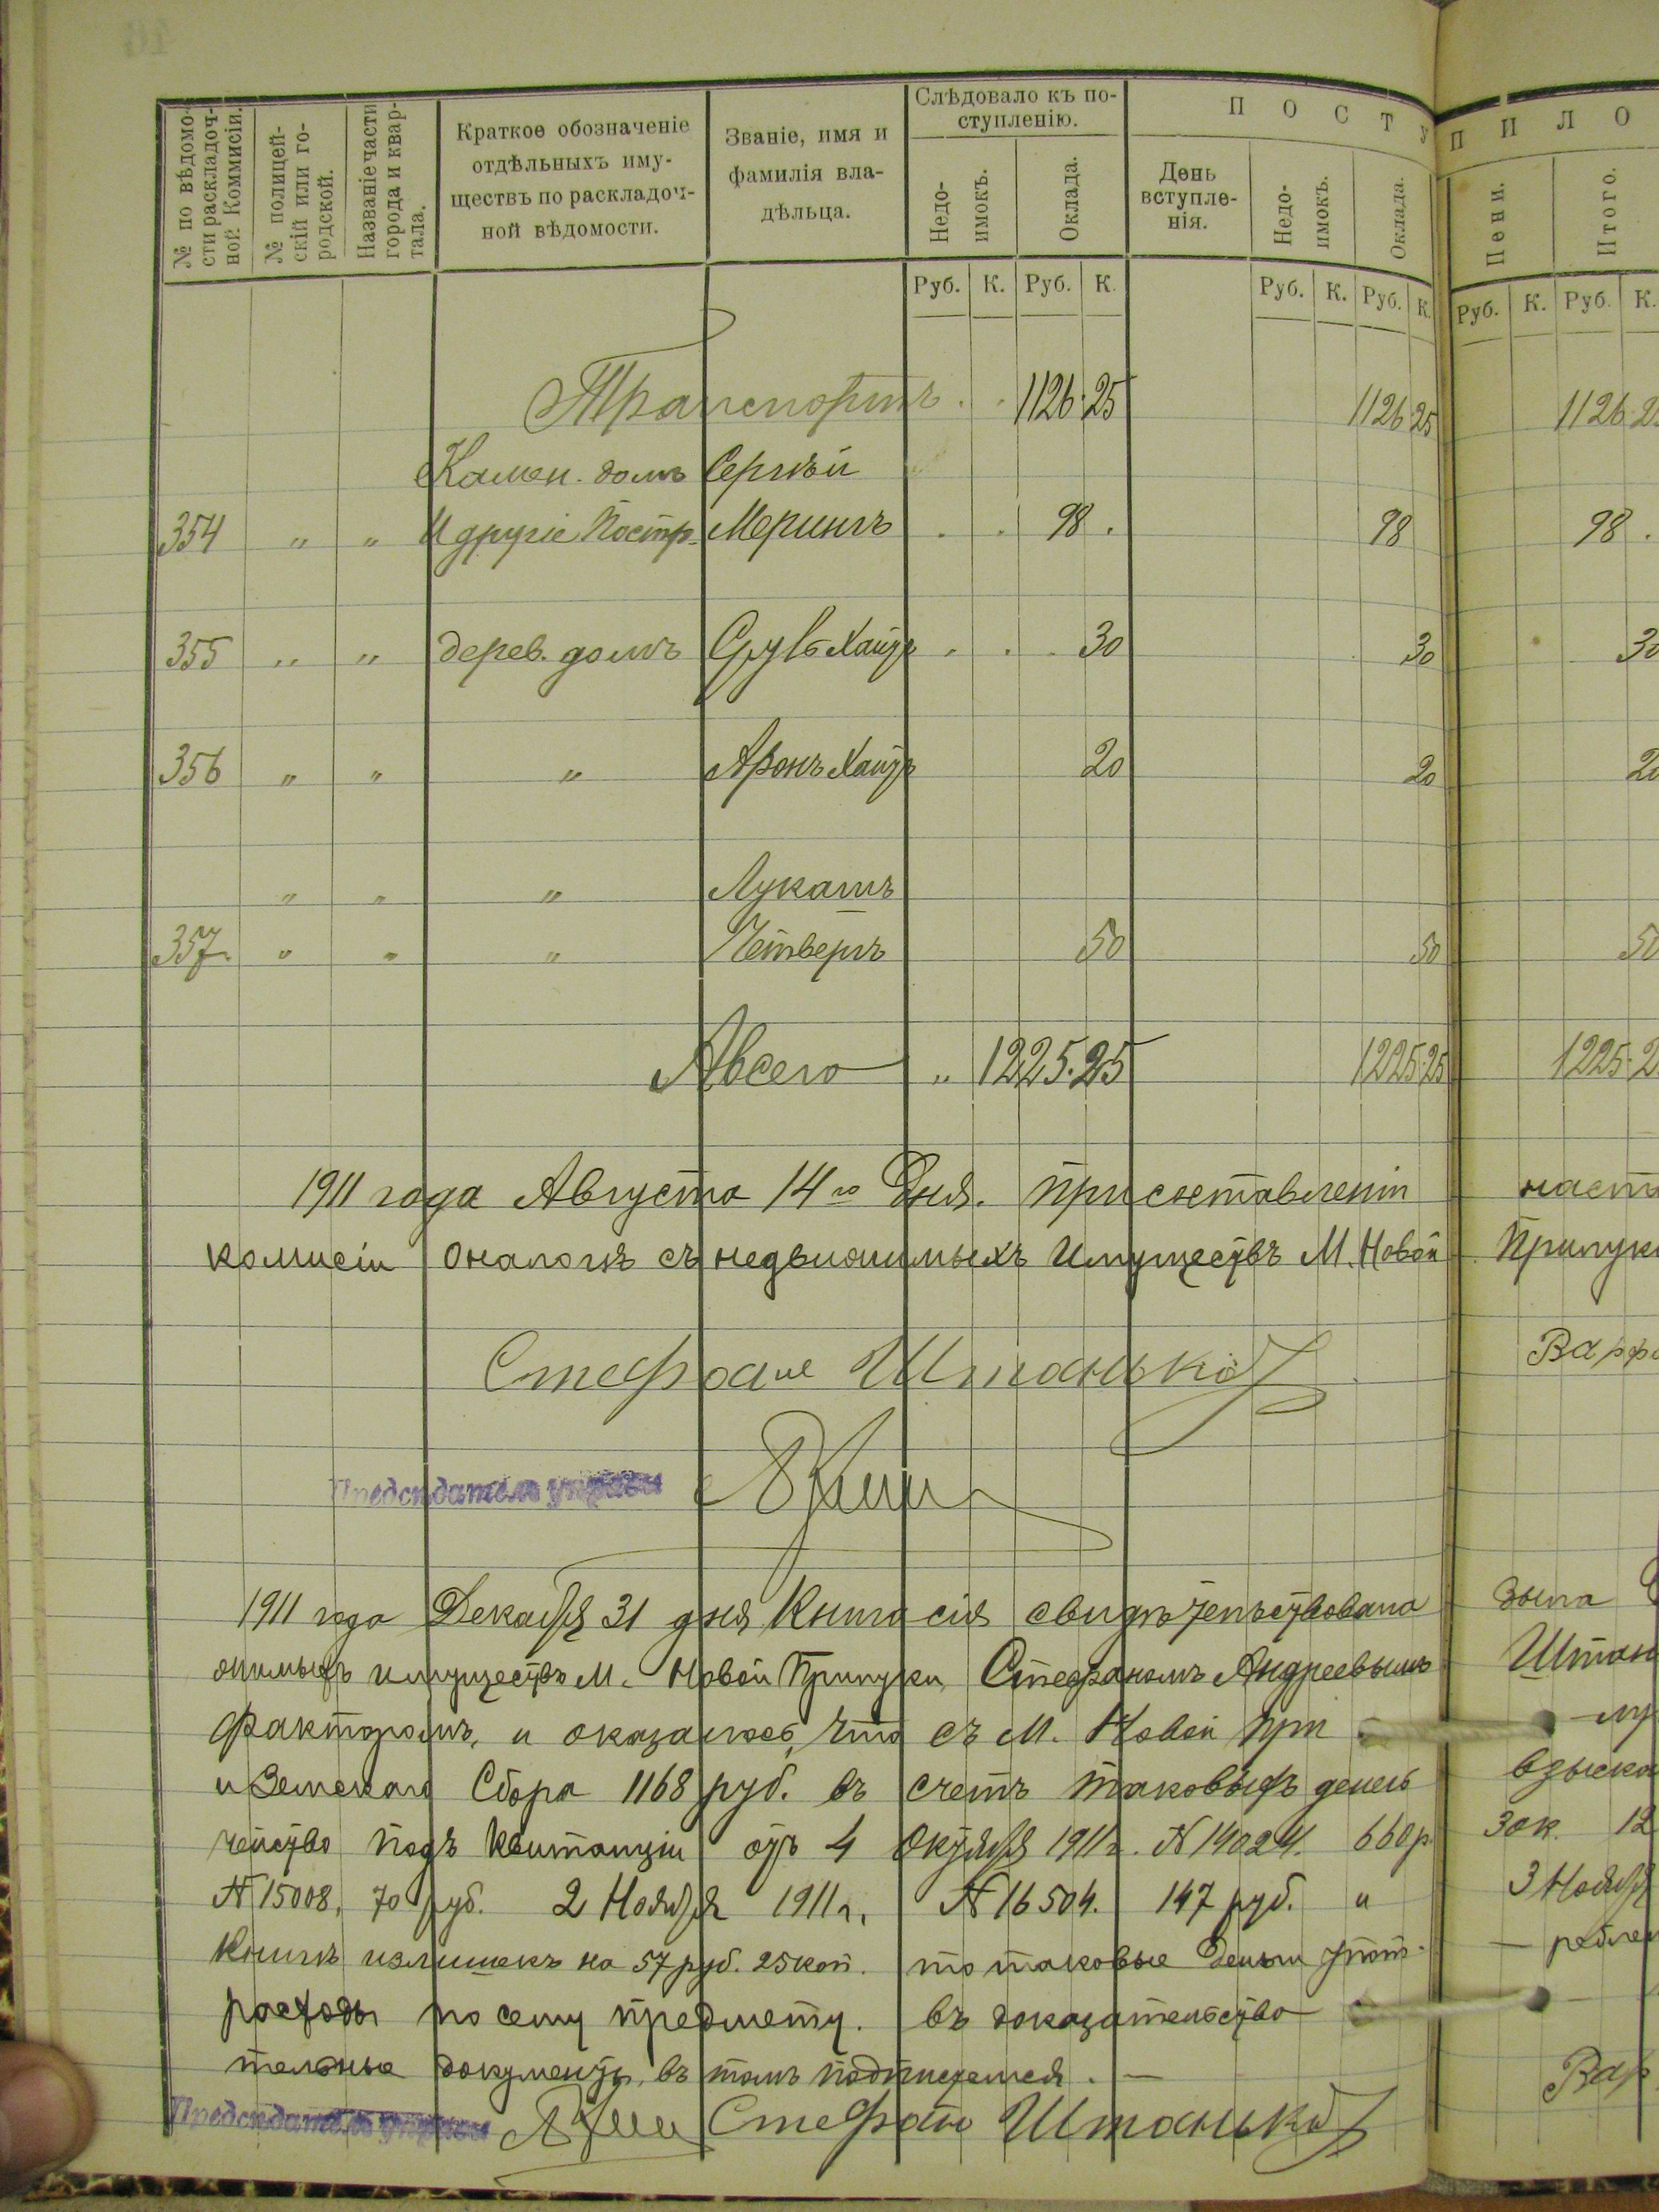 Слѣдовало къ поступленію.
П О С Т У П И Л О
№ по вѣдомости раскладочной Коммисіи.
№ полицейскій или городской.
Названіе части города и квартала.
Краткое обозначеніе
отдѣльныхъ иму-
ществъ по раскладоч-
ной вѣдомости.
Званіе, имя и
фамилія вла-
дѣльца.
Недоимокъ.
Оклада.
День
вступле-
нія.
Недоимокъ.
Оклада.
Пени.
Итого.
Руб. К. Руб. К. Руб. К. Руб. К. Руб. К. Руб. К.
Транспортъ . . 1126.25 1126 25 1126.2
Камен. домъ Сергѣй
354 " " И другіе Постр. Мерингъ . . 98 . 98 98 .
355 " " дерев. домъ Хаитъ . . . 30 30 30
356 " " " Аронъ Хаитъ 20 20 20
" " " Лукашъ
357. " " " Четверть 50 50 50
Авсего " 1225.25 1225.25 1225.2
1911 года Августа 14го Дня. При составленіи наст
комисіи о налогѣ съ недвижимыхъ Имуществъ М. Новой Прилуки
Стефанъ Штанько Варф
Предсѣдатель управы
1911 года Декабря 31 дня Книга сія свидѣтельствована
жимыхъ имуществъ М. Новой Прилуки Стефаномъ Андреевымъ Штан
Факторомъ, и оказалось, что съ М. Новой При -лу
и Земскаго Сбора 1168 руб. въ счетъ таковыхъ денегъ взыска
чейство подъ Квитанціи отъ 4 Октября 1911 г. N 14024. 660 р 30к. 12
N 15008, 70 руб. 2 Ноября 1911 г. N 16504. 147 руб. и 3 Ноября
Книгѣ излишекъ на 57 руб. 25 коп. то таковые Деньги упот- – реблен
расходы по сему предмету. въ доказательство
тельные документы, въ томъ подписуемся. –
Предсѣдатель управы Стефанъ Штанько Вар